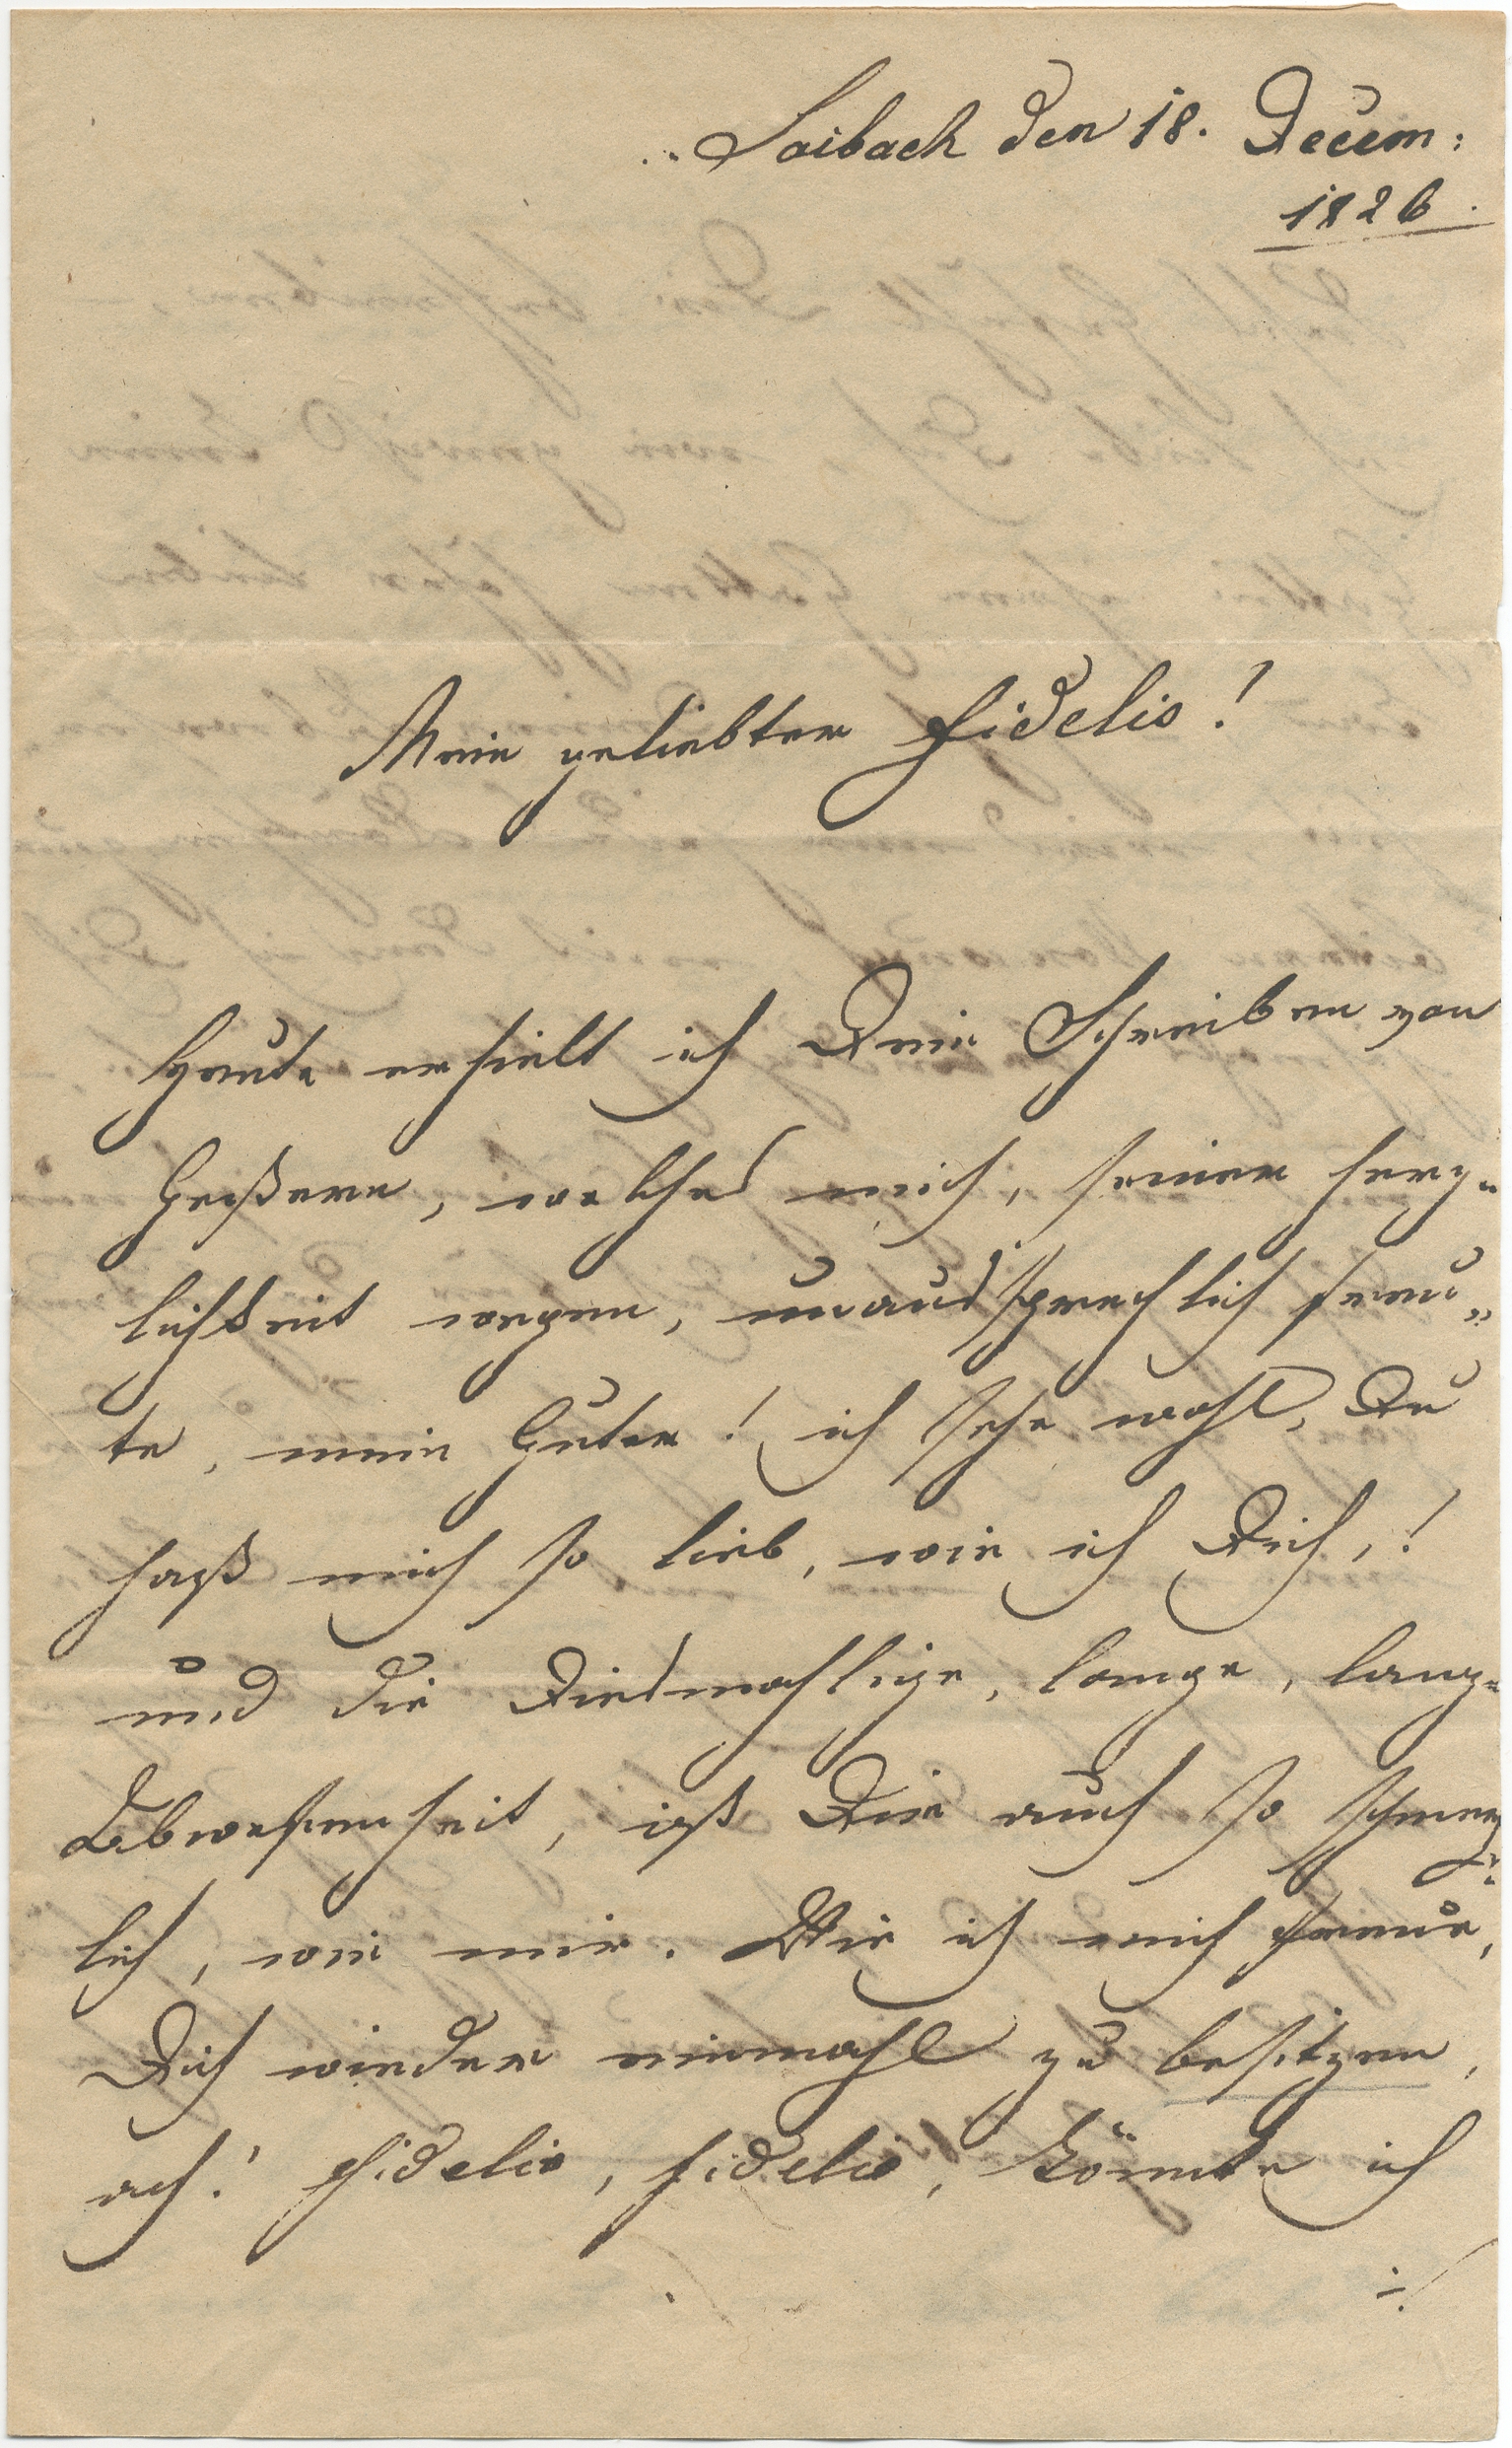 Laibach den 18. Decem:
1826.
Mein geliebter Fidelis!
Heute erhielt ich Dein Schreiben von
welches mich, seiner herz=
lichkeit wegen, unaussprechlich freu„
te, mein Guter! ich sehe wohl, Du
hast mich so lieb, wie ich Dich,!
und die Diesmahlige, lange, lange
Abwesenheit, ist Dir auch so schmerz=
lich, wie mir. Wie ich mich freue,
Dich wieder einmahl zu besitzen,
ach! Fidelis, Fidelis, könnte ich
./.